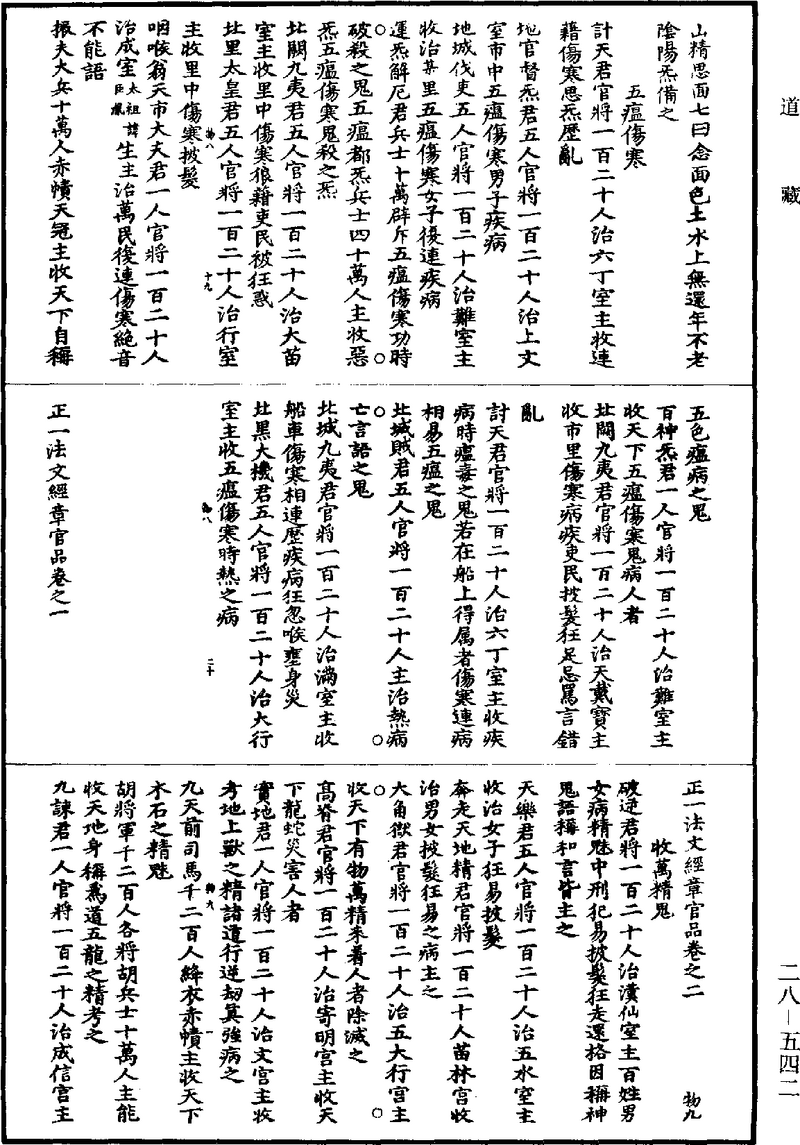 道藏
山精思面七日念面色土水上無還年不老
陰陽炁備之
五瘟傷寒
計天君官將一百二十人治六丁室主收連
藉傷寒思炁歷亂
地官督炁君五人官將一百二十人治上文
室市中五瘟傷寒男子疾病
地城伐吏五人官將一百二十人治難室主
收治某里五瘟傷寒女子復連疾病
運炁解厄君兵士十萬辟斥五瘟傷寒功時
破殺之鬼五瘟都炁兵士四十萬人主收惡
炁五瘟傷寒鬼殺之炁
北闕九夷君五人官將一百二十人治大苗
室主收里中傷寒狼藉吏民被狂惑
北里太皇君五人官將一百二十人治行室
主收里中傷寒披髮
咽喉翁天市大夫君一人官將一百二十人
治成室太祖諱臣胤生主治萬民復連傷寒絕音
不能語
振夫大兵十萬人赤幘天冠主收天下自稱
物八
十九
五色瘟病之鬼
百神炁君一人官將一百二十人治難室主
收天下五瘟傷寒鬼病人者
北闕九夷君官將一百二十人治天戴寶主
收市里傷寒病疾吏民披髮狂足忌罵言錯
亂
討天君官將一百二十人治六丁室主收疾
病時瘟毒之鬼若在船上得屬者傷寒連病
相易五瘟之鬼
北城賊君五人官將一百二十人主治熱病
亡言語之鬼
北城九夷君官將一百二十人治滿室主收
船車傷寒相連歷疾病狂忽喉壅身災
北黑大機君五人官將一百二十人治大行
室主收五瘟傷寒時熱之病
物八
二十
正一法文經章官品卷之一
正一法文經章官品卷之二
物九
收萬精鬼
破逆君將一百二十人治漢仙室主百姓男
女病精魅中刑犯易披髮狂走還格因稱神
鬼語稱和言皆主之
天樂君五人官將一百二十人治五水室主
收治女子狂易披髮
奔走天地精君官將一百二十人苗林宫收
治男女披髮狂易之病主之
大角獄君官將一百二十人治五大行宫主
收天下有物萬精来着人者除滅之
髙脊君官將一百二十人治寄明宫主收天
下龍蛇災害人者
實地君一人官將一百二十人治文宫主收
考地上獸之精諸道行逆劫冥強病之
九天前司馬千二百人絳衣赤幘主收天下
木石之精魅
胡將軍千二百人各將胡兵士十萬人主能
收天地身稱為道五龍之精考之
九諫君一人官將一百二十人治成信宫主
二八－五四二